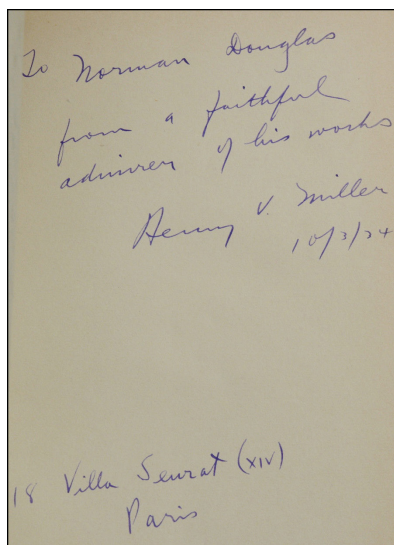 To Norman Douglas
from a faithful
admirer of his works
Henry V. Miller
10/3/34
18 Villa Seurat (XIV)
Paris